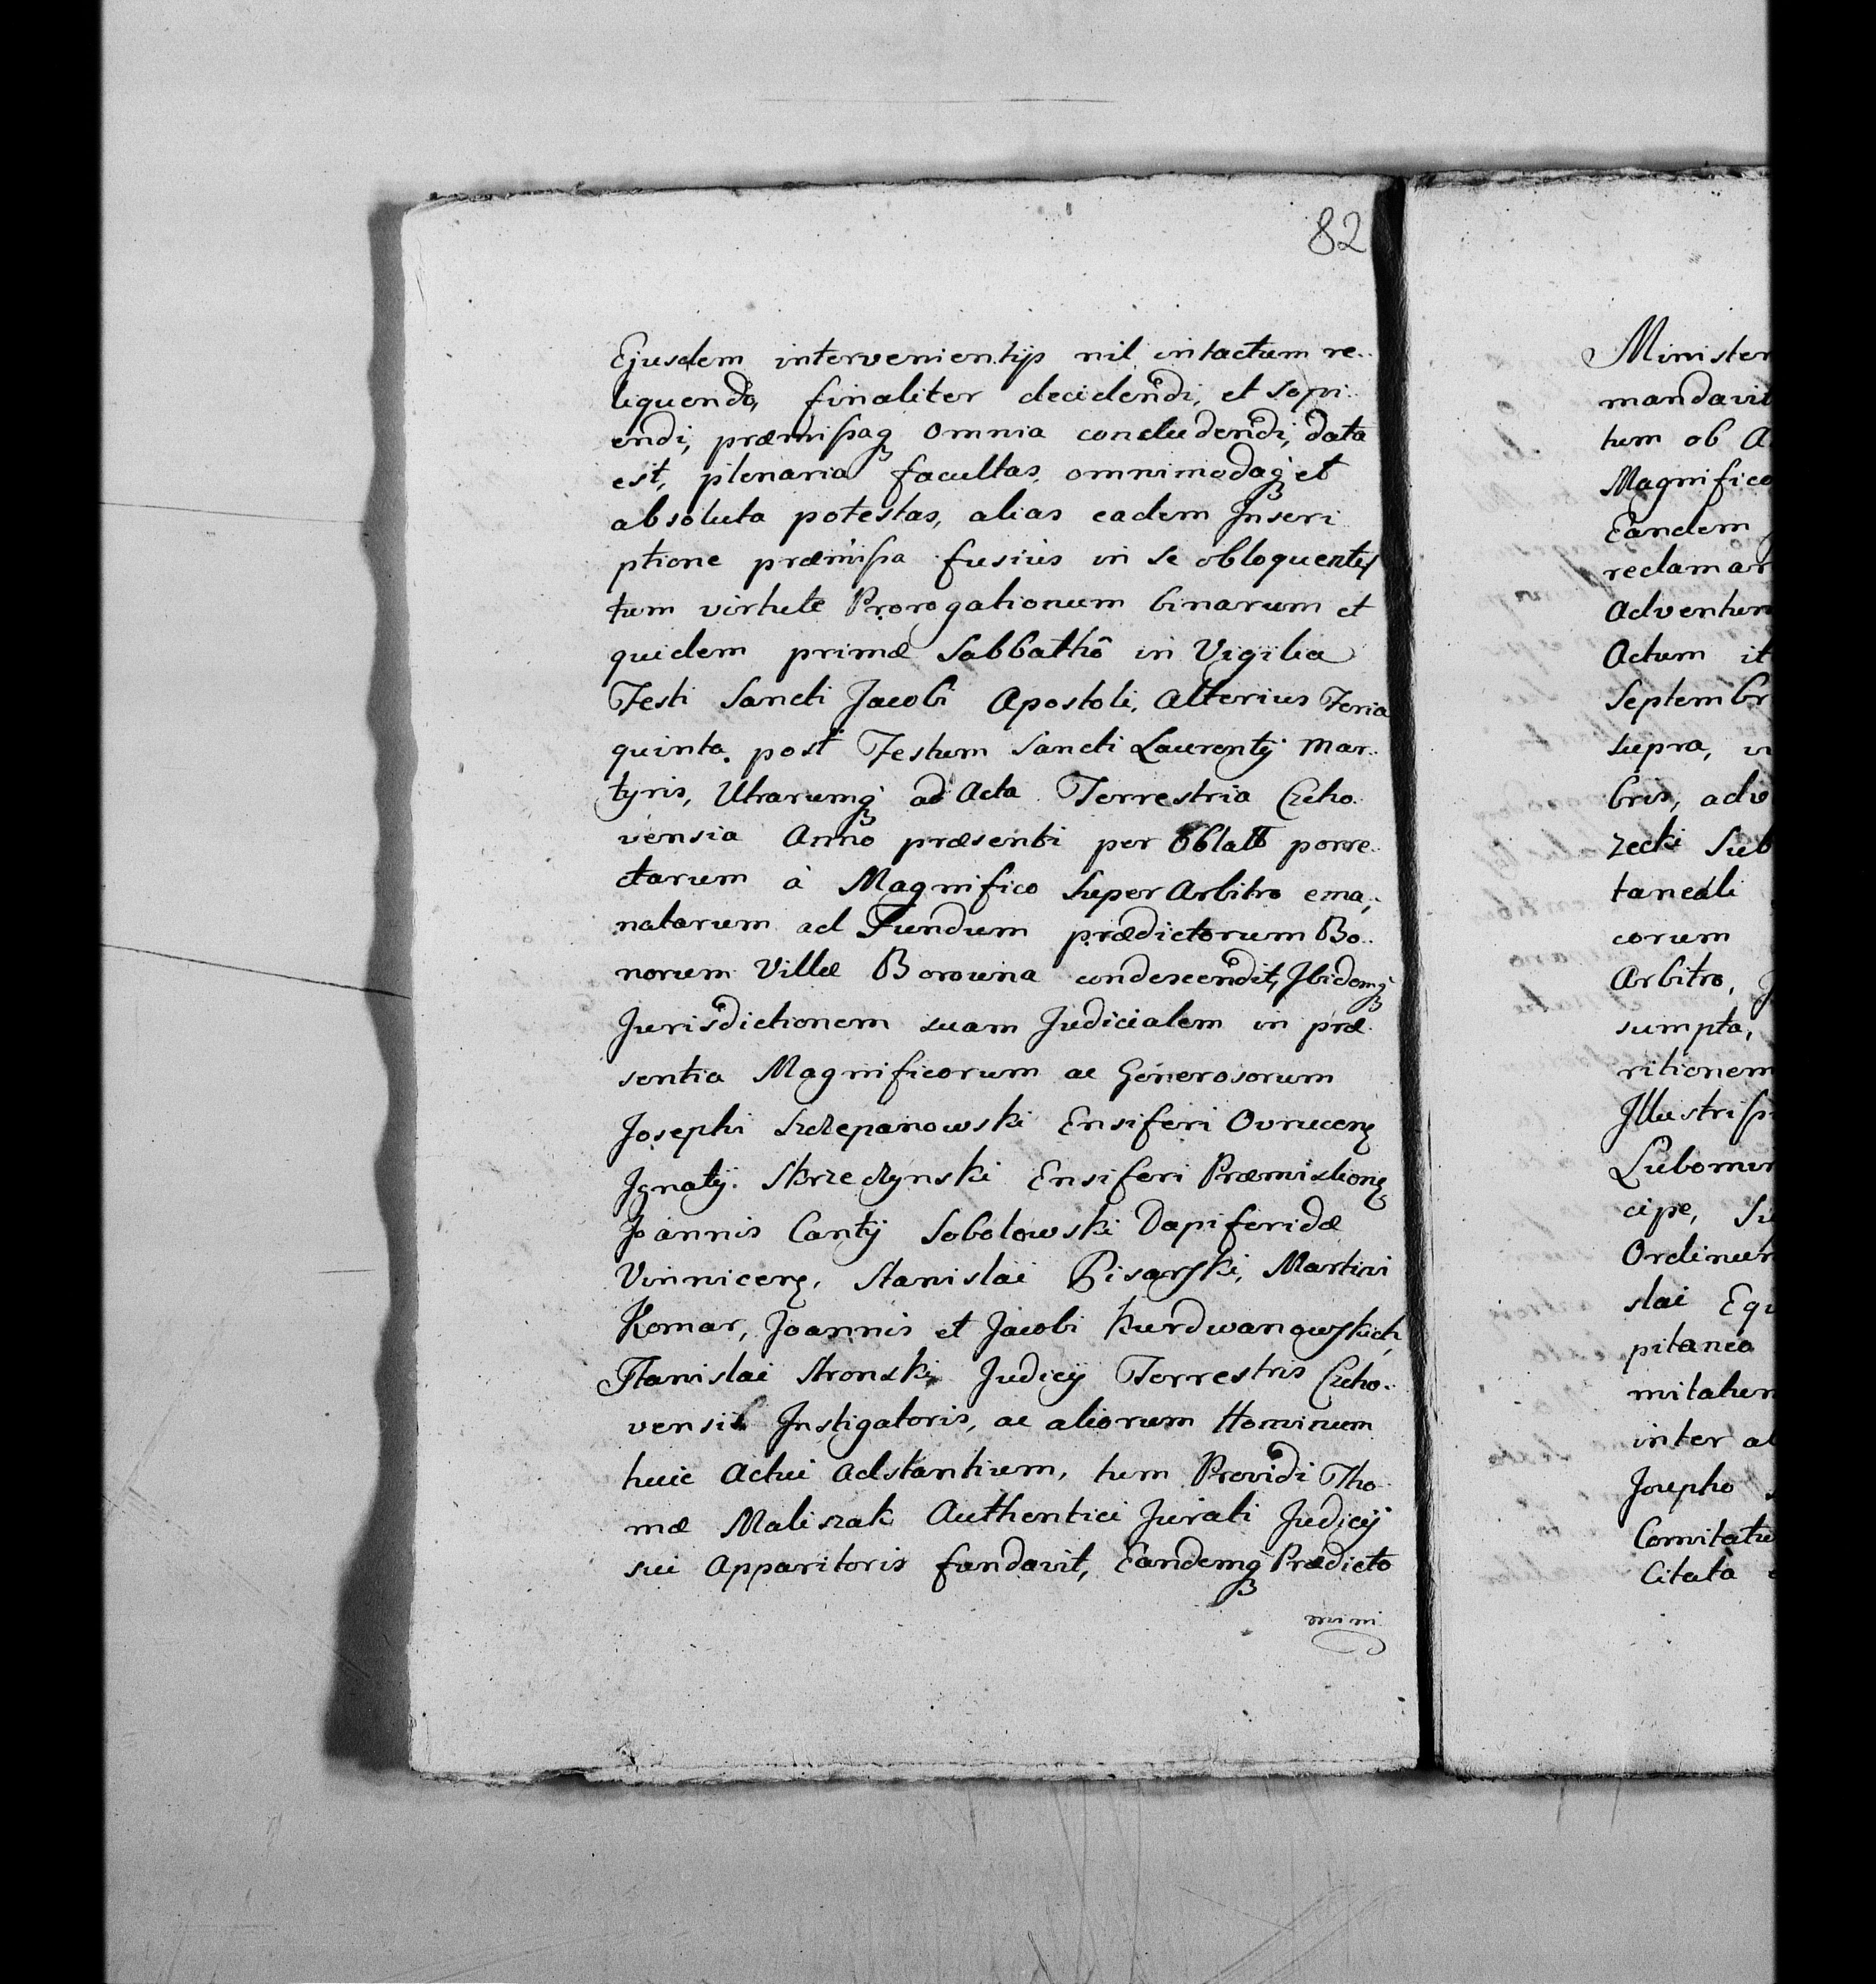 82
Ejusdem intervenientijs nil intactum re..
liquendo, finaliter decidendi, et sopi..
endi, præmissaq₃ omnia concludendi, data
est, plenaria facultas, omnimodaq₃ et
absoluta potestas, alias eadem Inscri
ptione præmissa fusius in se obloquentes
tum virtute Prorogationum binarum et
quidem primæ Sabbathô in Vigilia
Festi Sancti Jacobi Apostoli, Alterius Feria
quinta post Festum Sancti Laurentij Mar..
tyris, Utrarumq₃ ad Acta Terrestria Czcho.
vensia Anno præsenti per Oblatt porre..
ctarum à Magnifico Super Arbitro ema..
natarum ad Fundum prædictorum Bo..
norum Villæ Borowna condescendit, Ibidemq₃
Jurisdictionem suam Judicialem in præ
sentia Magnificorum ac Generosorum
Josephi Szczepanowski Ensiferi Ovrucenȝ
Ignatij Skrzeczynski Ensiferi Præmislienȝ
Joannis Cantij Sobolowski Dapiferidæ
Vinnicenȝ, Stanislai Pisarski, Martini
Komar, Joannis et Jacobi Kurdwanowskich,
Stanislai Stronski Judicij Terrestris Czcho.
vensis Instigatoris, ac aliorum Hominum
huic Actui Adstantium, tum Providi Tho
mæ Maliszak Authentici Jurati Judicij
sui Apparitoris fundavit, Eandemq₃ Prædicto
mini
Minister
mandavit
tum ob A
Magnifico
Eandem
reclamar
Adventum
Actum it
Septembr
supra, vi
bris, adv
zecki Sub
taneali
corum
Arbitro, J
sumpta,
ritionem
Illustrissi
Lubomir
cipe, Su
Ordinum
slai Equ
pitaneo
mitatum
inter al
Josepho
Comitatu
Citata